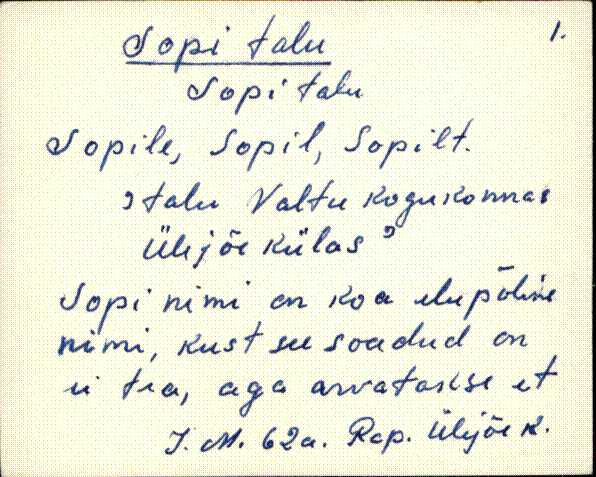 1.
Sopi talu
Sopi talu
Sopile, Sopil, Sopilt.
"talu Valtu kogukonnas
Ülejõe külas"
Sopi nimi on koa elupõline
nimi, kust see soadud on
ei tea, aga arvatakse et
J. M. 62a. Rap. Ülejõe k.